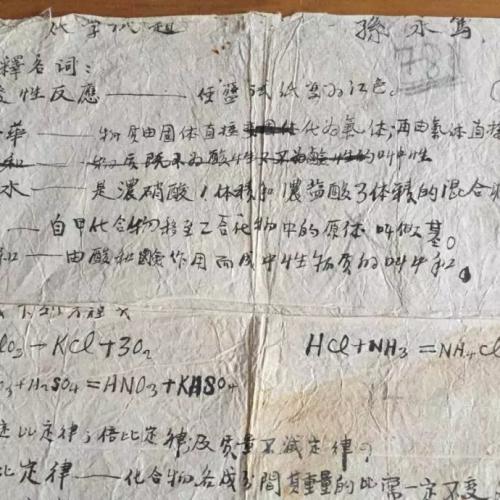 化学試題 孫永篤 781
釋名詞：
性反應——使藍試紙变為紅色。
華——物质由固体直接化為氣体，再由氣体直接
水——是濃硝酸1体積和濃盐酸3体積的混合物
——自甲化合物移至乙化合物中的原体叫做基。
和——由酸和鹼作用而成中性物质的叫中和。
→KCl+3O₂ HCl+NH₃=NH₄Cl
₃+H₂SO₄=HNO₃+KHSO₄
比定律；倍比定律及质量不減定律。
比定律——化合物各成分間其重量的比常一定不变